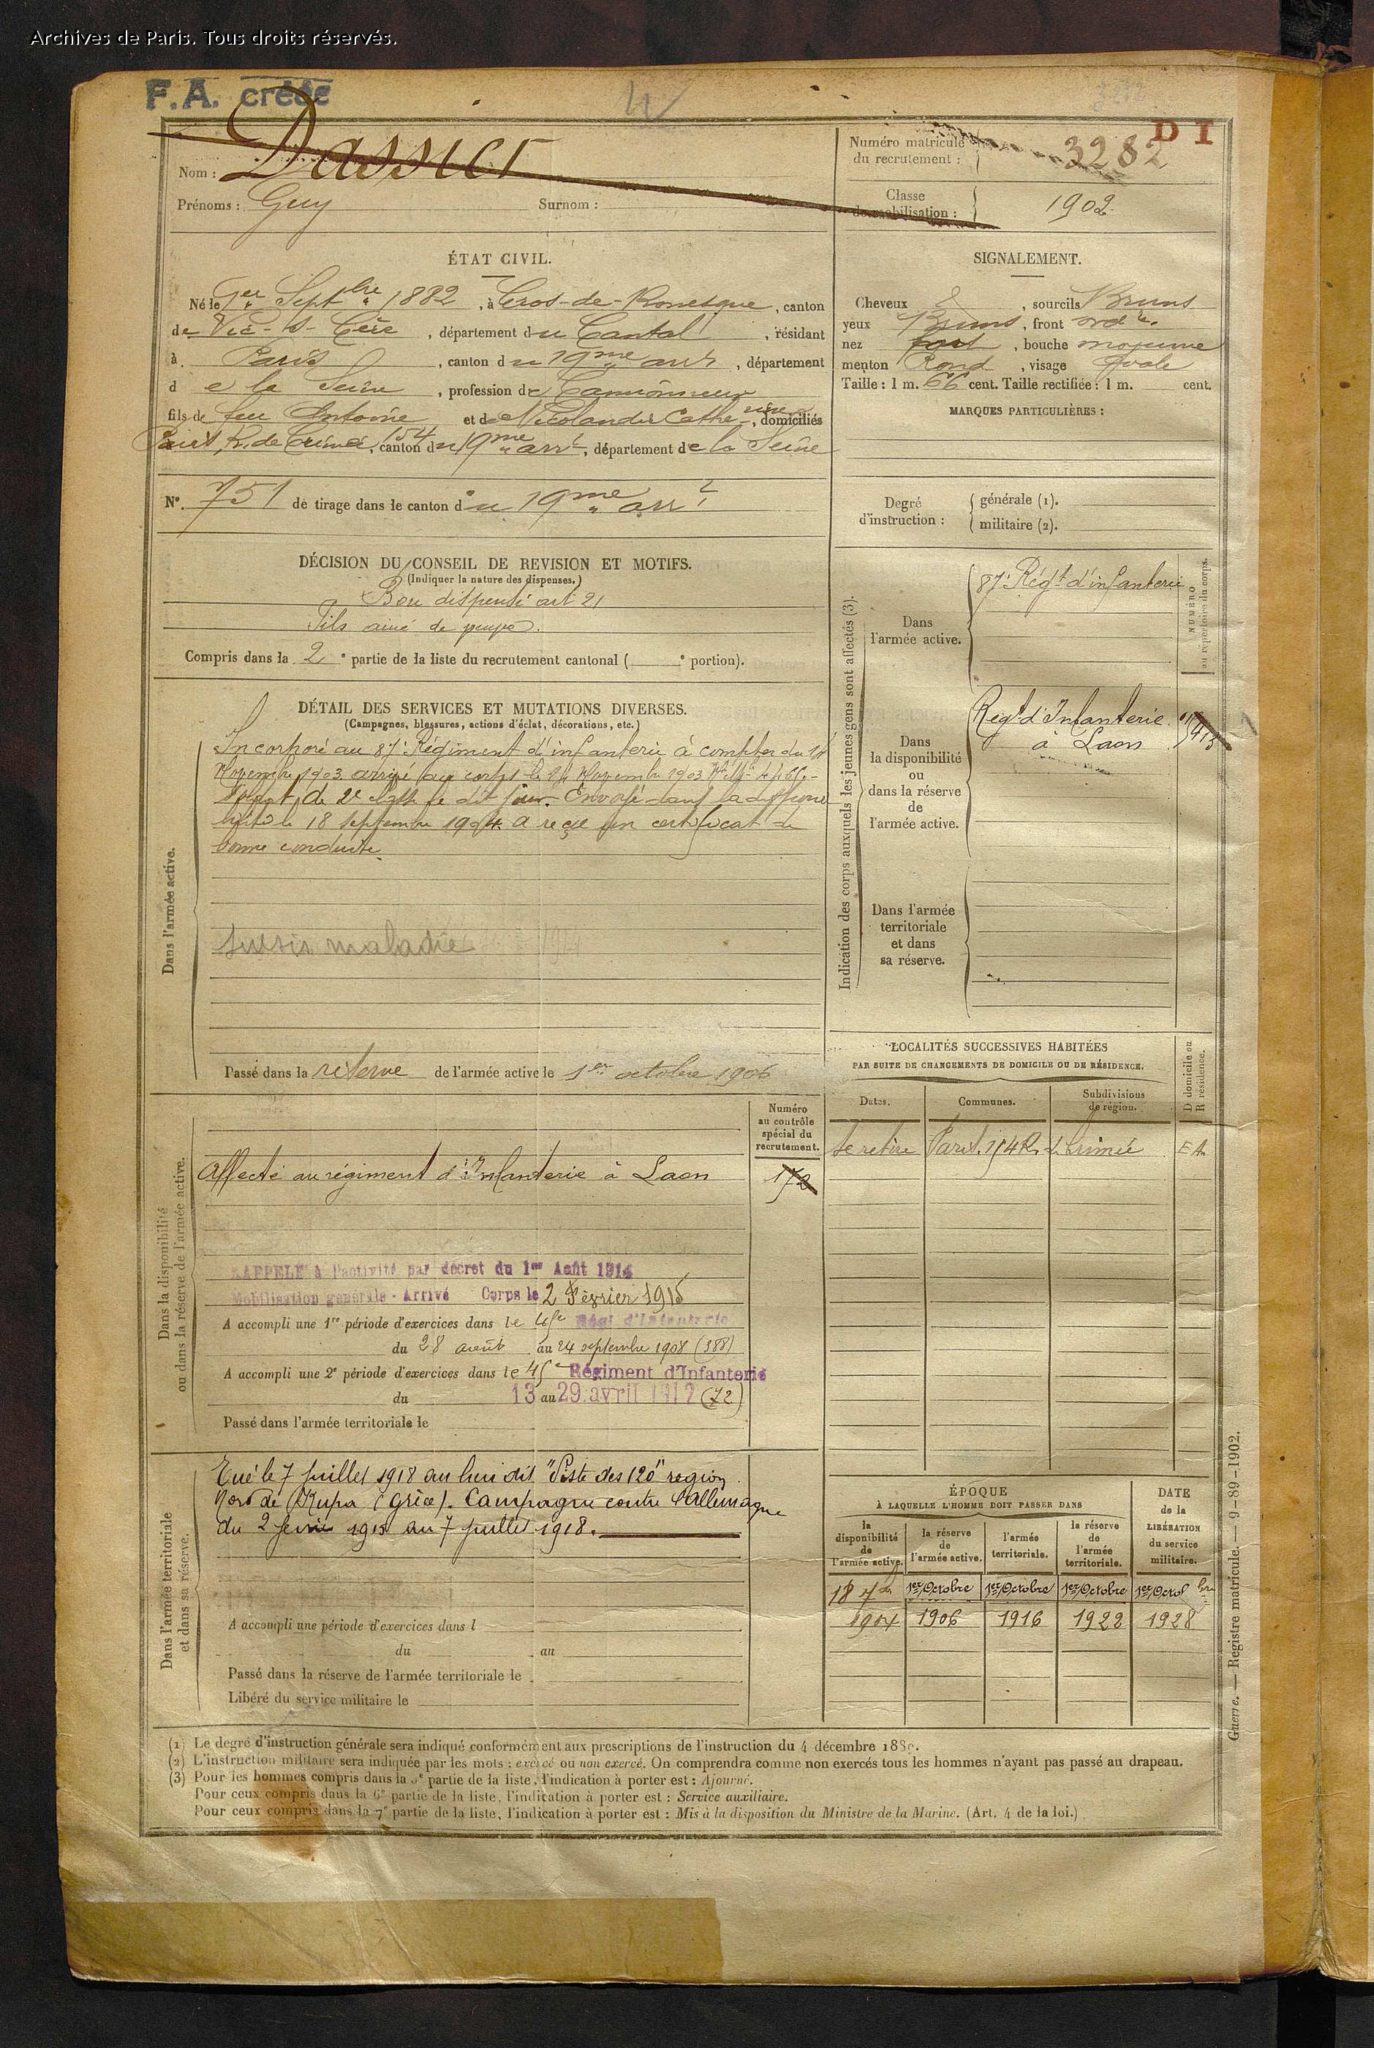 Archives de Paris. Tous droits réservés.
F.A. créée
D I
Nom : Dassier
Prénoms : Guy Surnom :
Numéro matricule du recrutement : 3282
Classe de mobilisation : 1902
ÉTAT CIVIL.
Né le 1er Septbre 1882, à Cros-de-Ronesque, canton
de Vic-s-Cère, département du Cantal, résidant
à Paris, canton du 19me arrt, département
de la Seine, profession de Camionneur
fils de feu Antoine et de Cathe, domiciliés
Paris, R. de Crimée, 154, canton du 19me arrt, département de la Seine
N° 751 de tirage dans le canton du 19me arrt
SIGNALEMENT.
Cheveux, sourcils Bruns
yeux Bruns, front ordre.
nez fort, bouche moyenne
menton Rond, visage Ovale
Taille : 1 m. 66 cent. Taille rectifiée : 1 m. cent.
MARQUES PARTICULIÈRES :
Degré d'instruction :
générale (1).
militaire (2).
DÉCISION DU CONSEIL DE REVISION ET MOTIFS.
(Indiquer la nature des dispenses.)
Bon dispensé art 21
Fils aîné de
Compris dans la 2e partie de la liste du recrutement cantonal ( e portion).
DÉTAIL DES SERVICES ET MUTATIONS DIVERSES.
(Campagnes, blessures, actions d'éclat, décorations, etc.)
Dans l'armée active.
Incorporé au 87e Régiment d'infanterie à compter du 14
Novembre 1903 arrivé au corps le 14 Novembre 1903
de 2e classe le dit jour. Envoyé dans la disponi
bilité le 18 septembre 1904. A reçu un certificat de
bonne conduite.
sursis maladie
Passé dans la réserve de l'armée active le 1er octobre 1906
Indication des corps auxquels les jeunes gens sont affectés (3).
NUMÉRO au répertoire du corps.
Dans l'armée active.
87e Régt d'infanterie
Dans la disponibilité ou dans la réserve de l'armée active.
Régt d'Infanterie
à Laon
Dans l'armée territoriale et dans sa réserve.
LOCALITÉS SUCCESSIVES HABITÉES
PAR SUITE DE CHANGEMENTS DE DOMICILE OU DE RÉSIDENCE.
Dates.
Communes.
Subdivisions de région.
D domicile ou R résidence.
se retire Paris, 154 R. de Crimée
Dans la disponibilité ou dans la réserve de l'armée active.
Numéro au contrôle spécial du recrutement.
Affecté au régiment d'infanterie à Laon
RAPPELÉ à l'activité par décret du 1er Août 1914
Mobilisation générale - Arrivé Corps le 2 Février 1915
A accompli une 1re période d'exercices dans le 45e Régt d'Infanterie
du 28 août au 24 septembre 1908 (388)
A accompli une 2e période d'exercices dans le 45e Régiment d'Infanterie
du 13 au 29 avril 1912 (72)
Passé dans l'armée territoriale le
Dans l'armée territoriale et dans sa réserve.
Tué le 7 juillet 1918 au lieu dit "Piste des 120" région
Nord de Kupa (Grèce). Campagne contre l'Allemagne
du 2 février 1915 au 7 juillet 1918.
A accompli une période d'exercices dans l
du au
Passé dans la réserve de l'armée territoriale le
Libéré du service militaire le
ÉPOQUE
À LAQUELLE L'HOMME DOIT PASSER DANS
DATE de la LIBÉRATION du service militaire.
la disponibilité de l'armée active.
la réserve de l'armée active.
l'armée territoriale.
la réserve de l'armée territoriale.
18 7bre 1er Octobre 1er Octobre 1er Octobre 1er Octobre
1904 1906 1916 1922 1928
(1) Le degré d'instruction générale sera indiqué conformément aux prescriptions de l'instruction du 4 décembre 1889.
(2) L'instruction militaire sera indiquée par les mots : exercé ou non exercé. On comprendra comme non exercés tous les hommes n'ayant pas passé au drapeau.
(3) Pour les hommes compris dans la 5e partie de la liste, l'indication à porter est : Ajourné.
Pour ceux compris dans la 6e partie de la liste, l'indication à porter est : Service auxiliaire.
Pour ceux compris dans la 7e partie de la liste, l'indication à porter est : Mis à la disposition du Ministre de la Marine. (Art. 4 de la loi.)
Guerre. — Registre matricule. — 9-89-1902.